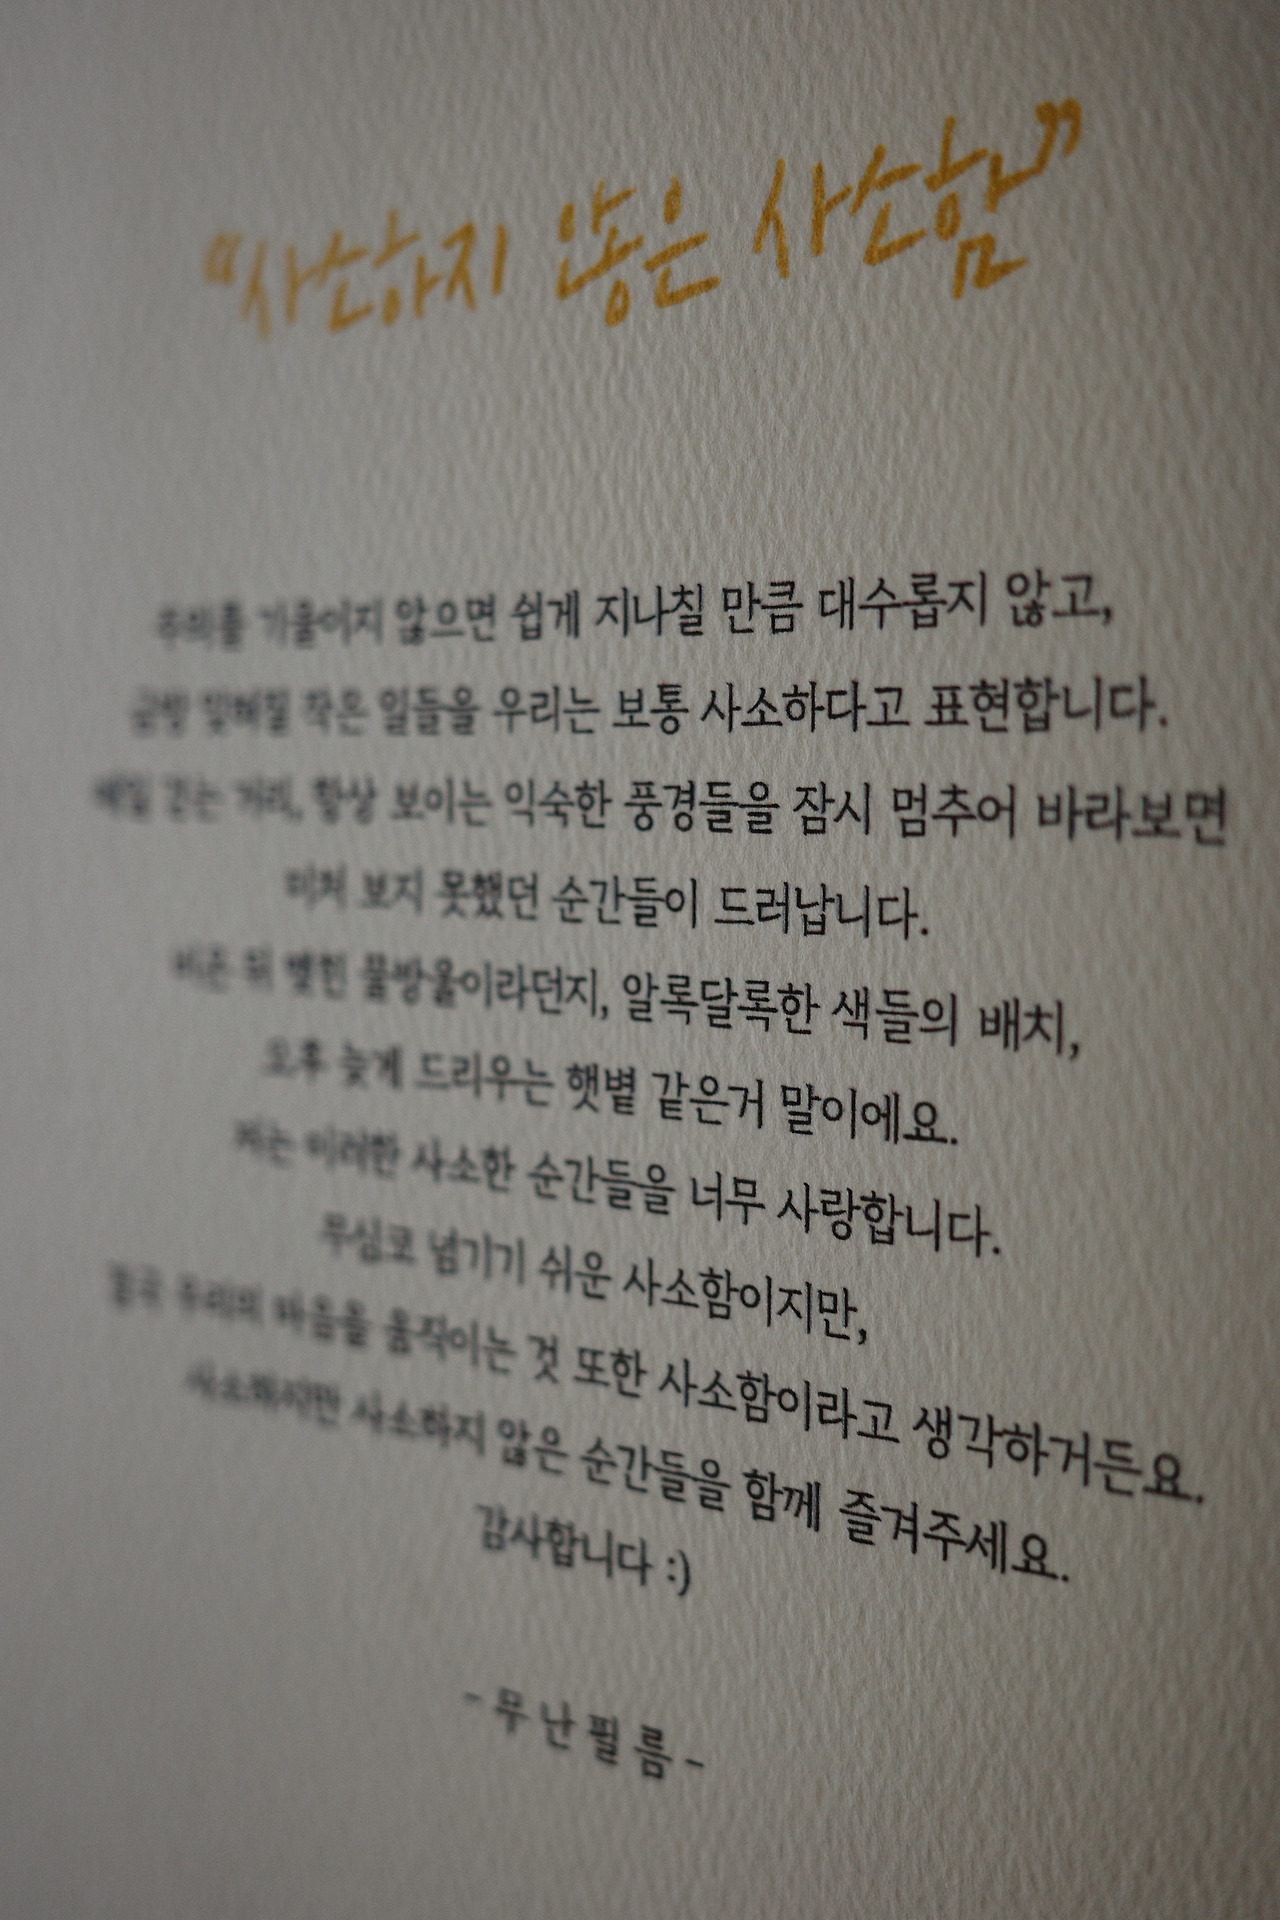 “사소하지 않은 사소함”
주의를 기울이지 않으면 쉽게 지나칠 만큼 대수롭지 않고,
금방 잊혀질 작은 일들을 우리는 보통 사소하다고 표현합니다.
매일 걷는 거리, 항상 보이는 익숙한 풍경들을 잠시 멈추어 바라보면
미처 보지 못했던 순간들이 드러납니다.
비온 뒤 맺힌 물방울이라던지, 알록달록한 색들의 배치,
오후 늦게 드리우는 햇볕 같은거 말이에요.
저는 이러한 사소한 순간들을 너무 사랑합니다.
무심코 넘기기 쉬운 사소함이지만,
결국 우리의 마음을 움직이는 것 또한 사소함이라고 생각하거든요.
사소하지만 사소하지 않은 순간들을 함께 즐겨주세요.
감사합니다 :)
- 무난필름 -